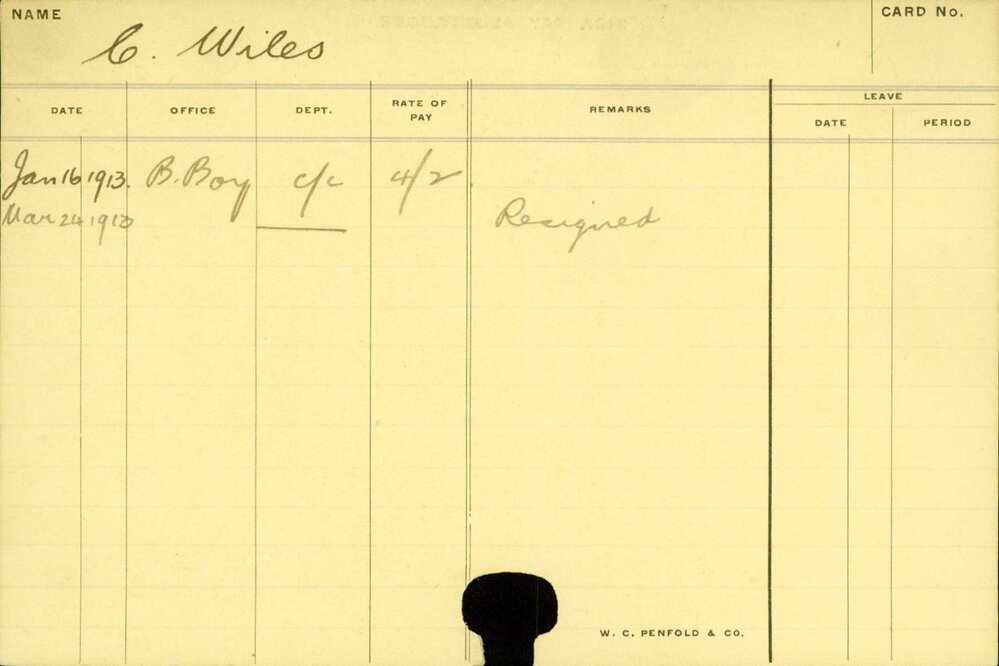 NAME
CARD No.
C. Wiles
DATE OFFICE DEPT. RATE OF PAY REMARKS LEAVE
DATE PERIOD
Jan 16 1913. B. Boy c/c 4/2
Mar 24 1913 Resigned
W. C. PENFOLD & CO.